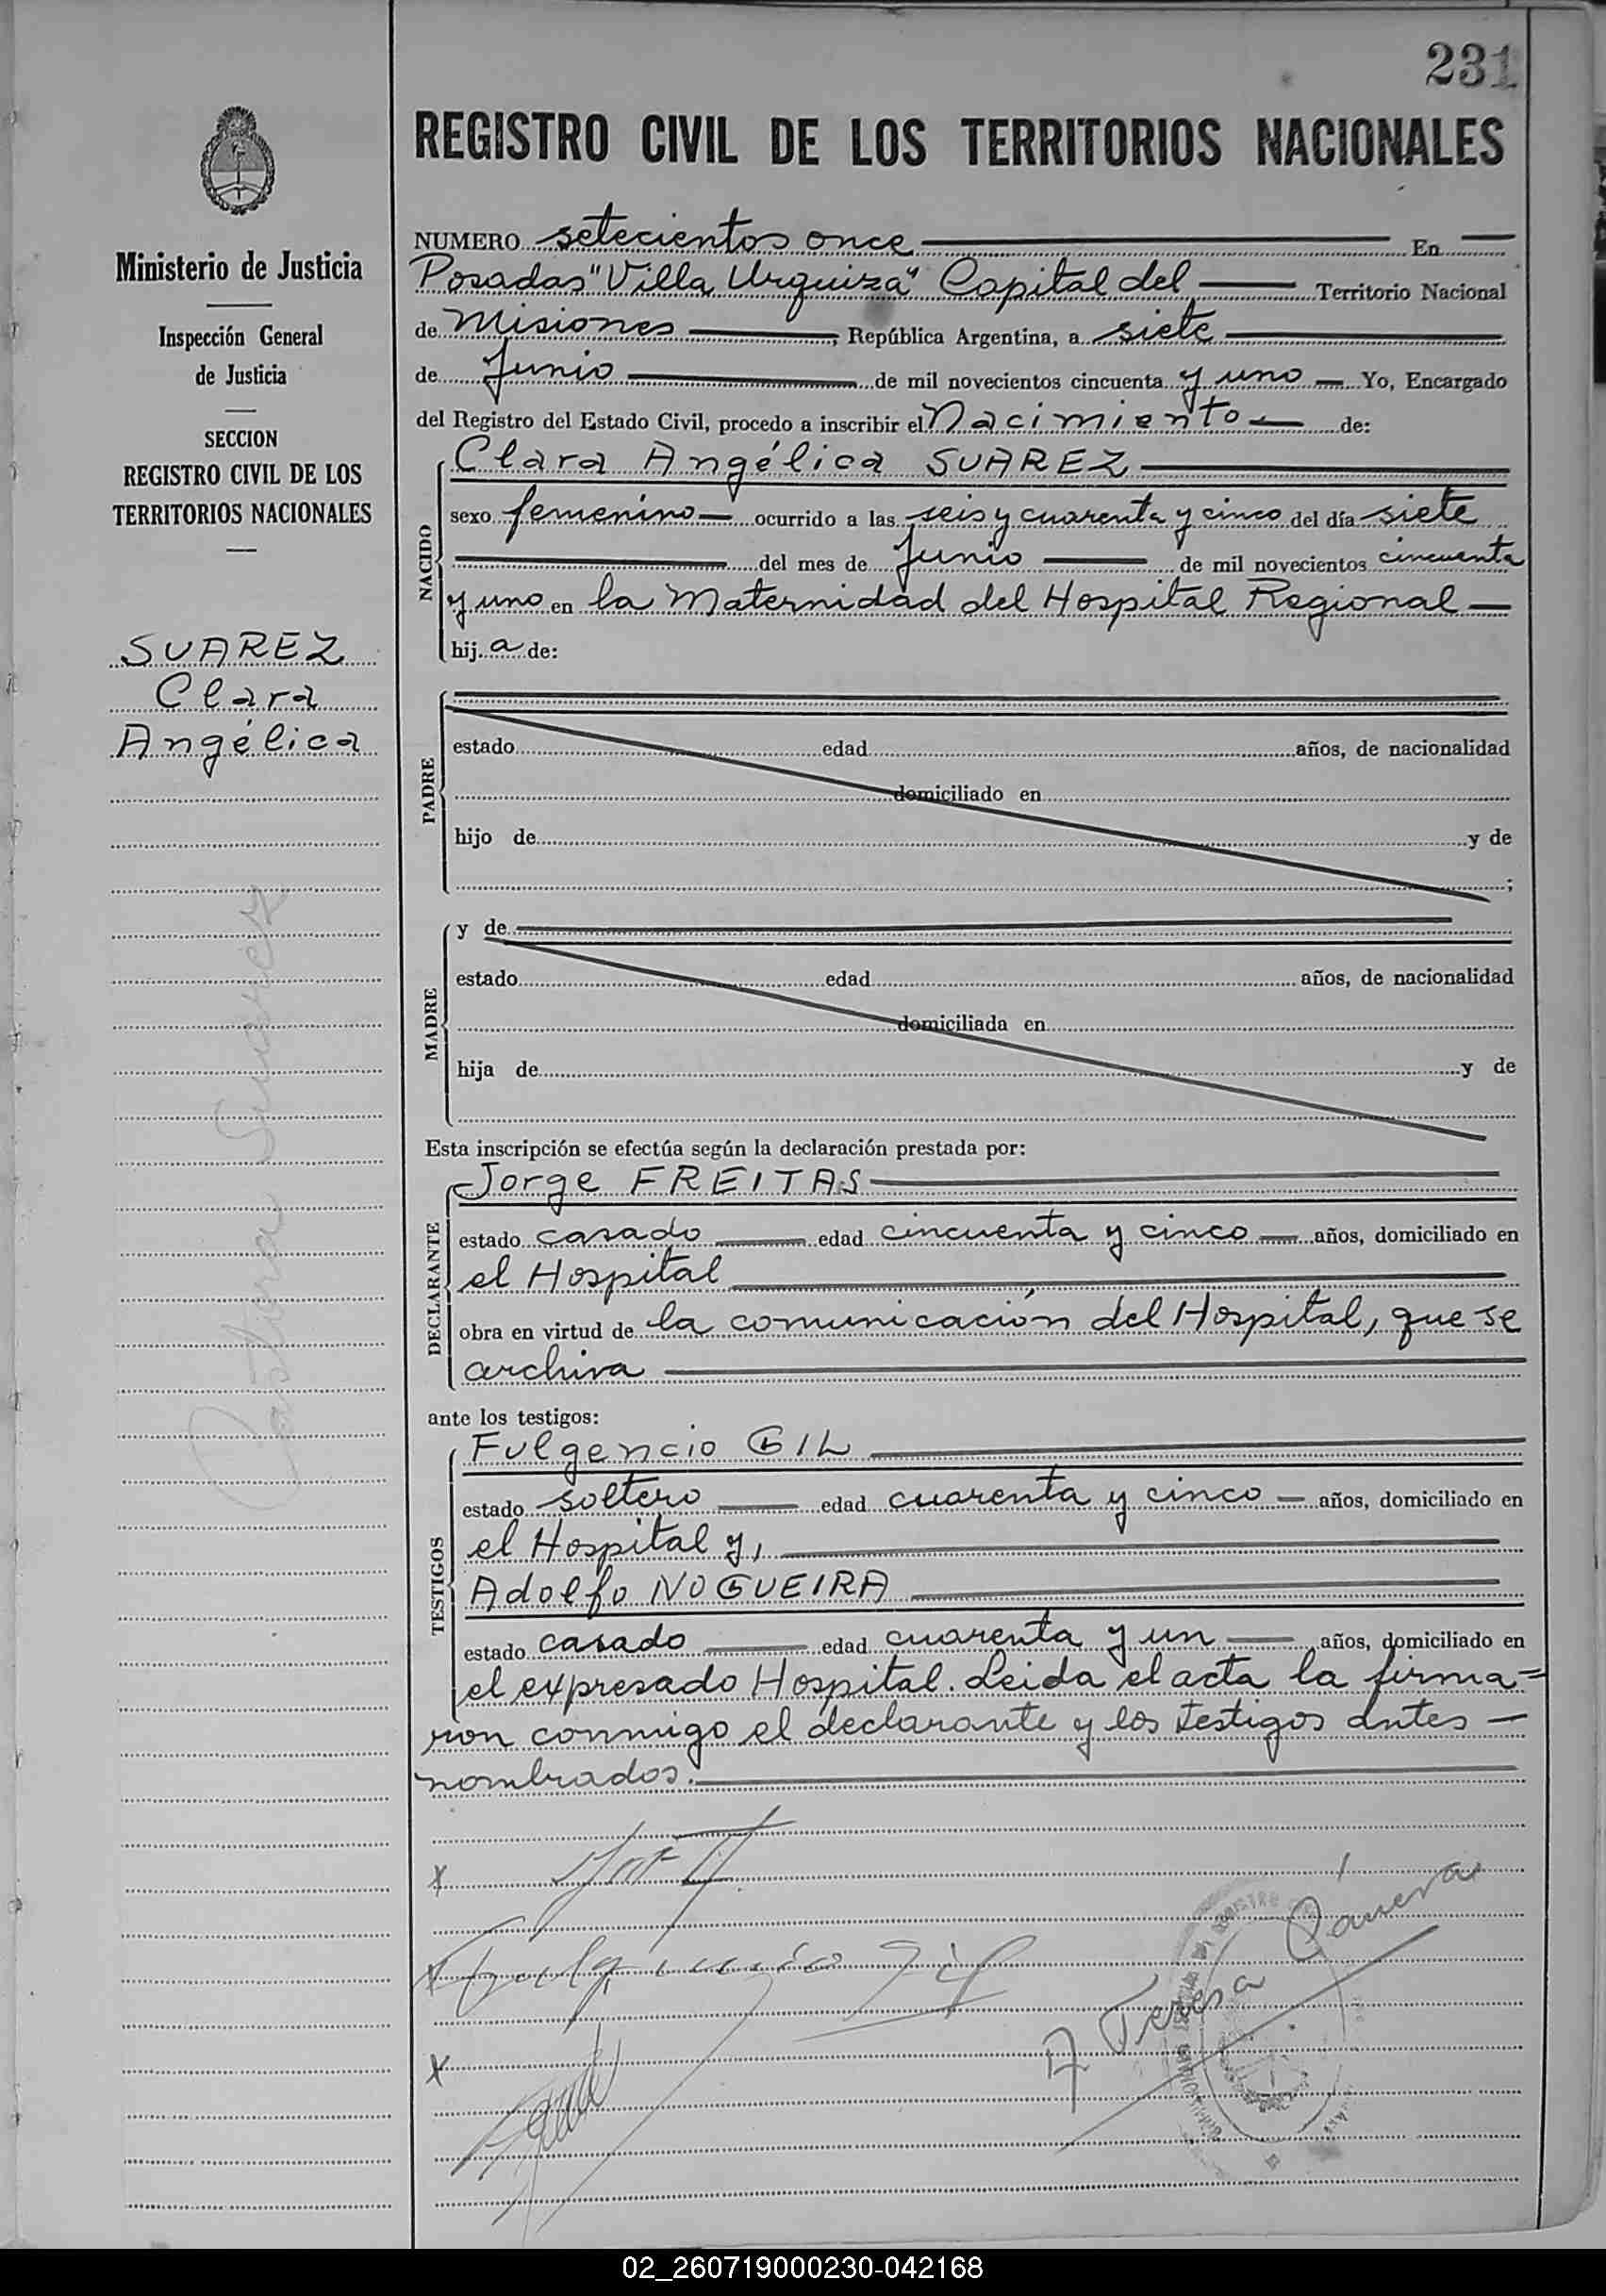 231
REGISTRO CIVIL DE LOS TERRITORIOS NACIONALES
Ministerio de Justicia
Inspección General
de Justicia
SECCION
REGISTRO CIVIL DE LOS
TERRITORIOS NACIONALES
SUAREZ
Clara
Angélica
Suarez
NUMERO setecientos once En
Posadas "Villa Urquiza" Capital del Territorio Nacional
de Misiones, República Argentina, a siete
de Junio de mil novecientos cincuenta y uno Yo, Encargado
del Registro del Estado Civil, procedo a inscribir el Nacimiento de:
NACIDO
Clara Angélica SUAREZ
sexo femenino ocurrido a las seis y cuarenta y cinco del día siete
del mes de Junio de mil novecientos cincuenta
y uno en la Maternidad del Hospital Regional
hij a de:
PADRE
estado edad años, de nacionalidad
domiciliado en
hijo de y de
;
MADRE
y de
estado edad años, de nacionalidad
domiciliada en
hija de y de
Esta inscripción se efectúa según la declaración prestada por:
DECLARANTE
Jorge FREITAS
estado casado edad cincuenta y cinco años, domiciliado en
el Hospital
obra en virtud de la comunicación del Hospital, que se
archiva
ante los testigos:
TESTIGOS
Fulgencio GIL
estado soltero edad cuarenta y cinco años, domiciliado en
el Hospital y,
Adolfo NOGUEIRA
estado casado edad cuarenta y un años, domiciliado en
el expresado Hospital. Leida el acta la firma=
ron conmigo el declarante y los testigos antes
nombrados.
x
x Fulgencio Gil
A Teresa
x
02_260719000230-042168